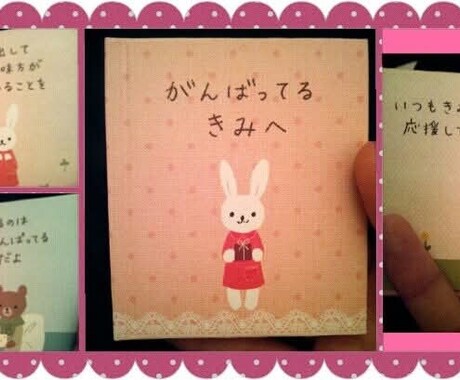 出して
味方が
ることを
がんばってる
きみへ
いつもき
応援して
のは
んばってる
だよ